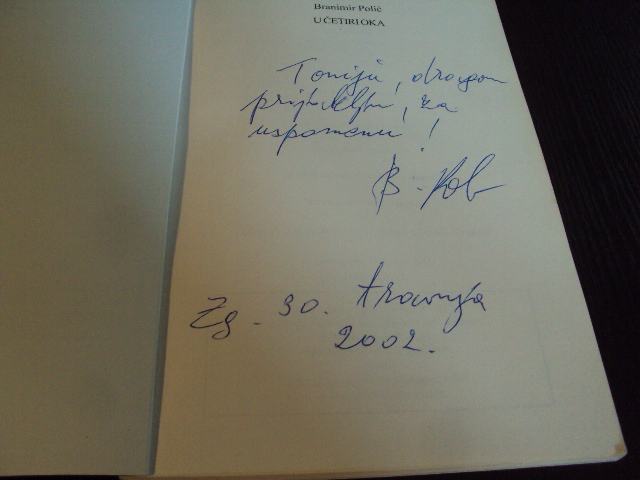 Branimir Polić
U ČETIRI OKA
Toniju, dragom
prijatelju, za
uspomenu!
B.
Zg. 30. travnja
2002.